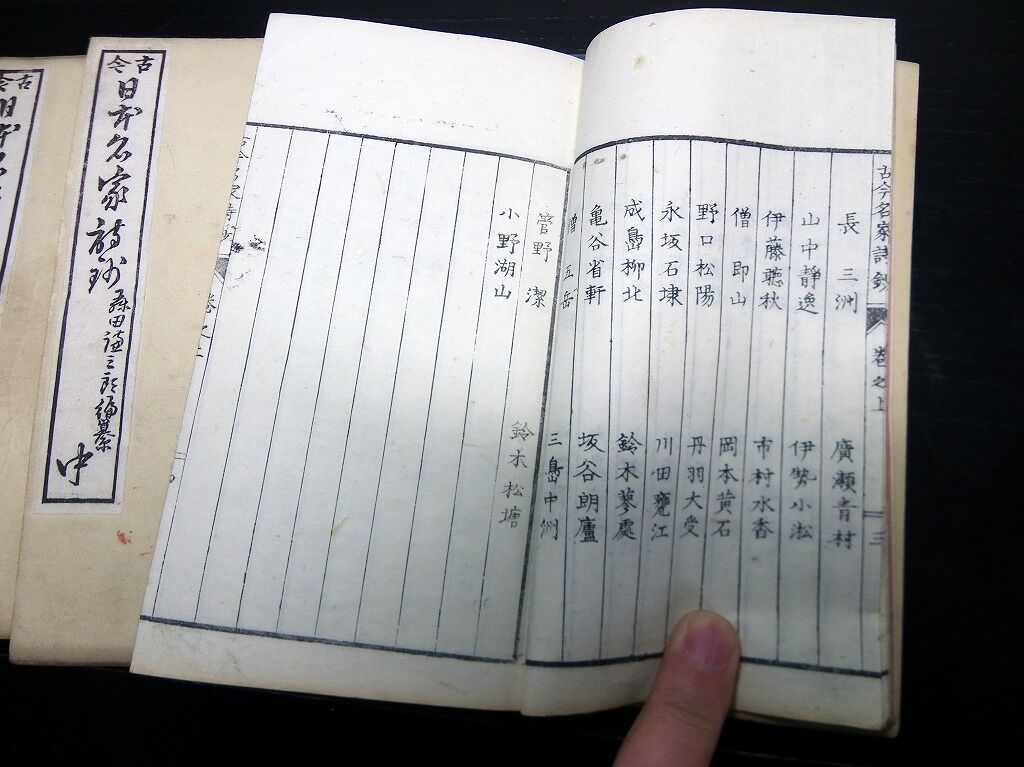 古今名家詩鈔
卷之上
三
長 三洲
廣瀬青村
山中靜逸
伊勢小淞
伊藤聽秋
市村水香
僧 即山
岡本黄石
野口松陽
丹羽大受
永坂石埭
川田甕江
成島柳北
鈴木蓼處
亀谷省軒
坂谷朗廬
僧 五岳
三島中洲
菅野 潔
鈴木松塘
小野湖山
古今
日本名家詩鈔
藤田謙三郎編纂
中
古今
日本名